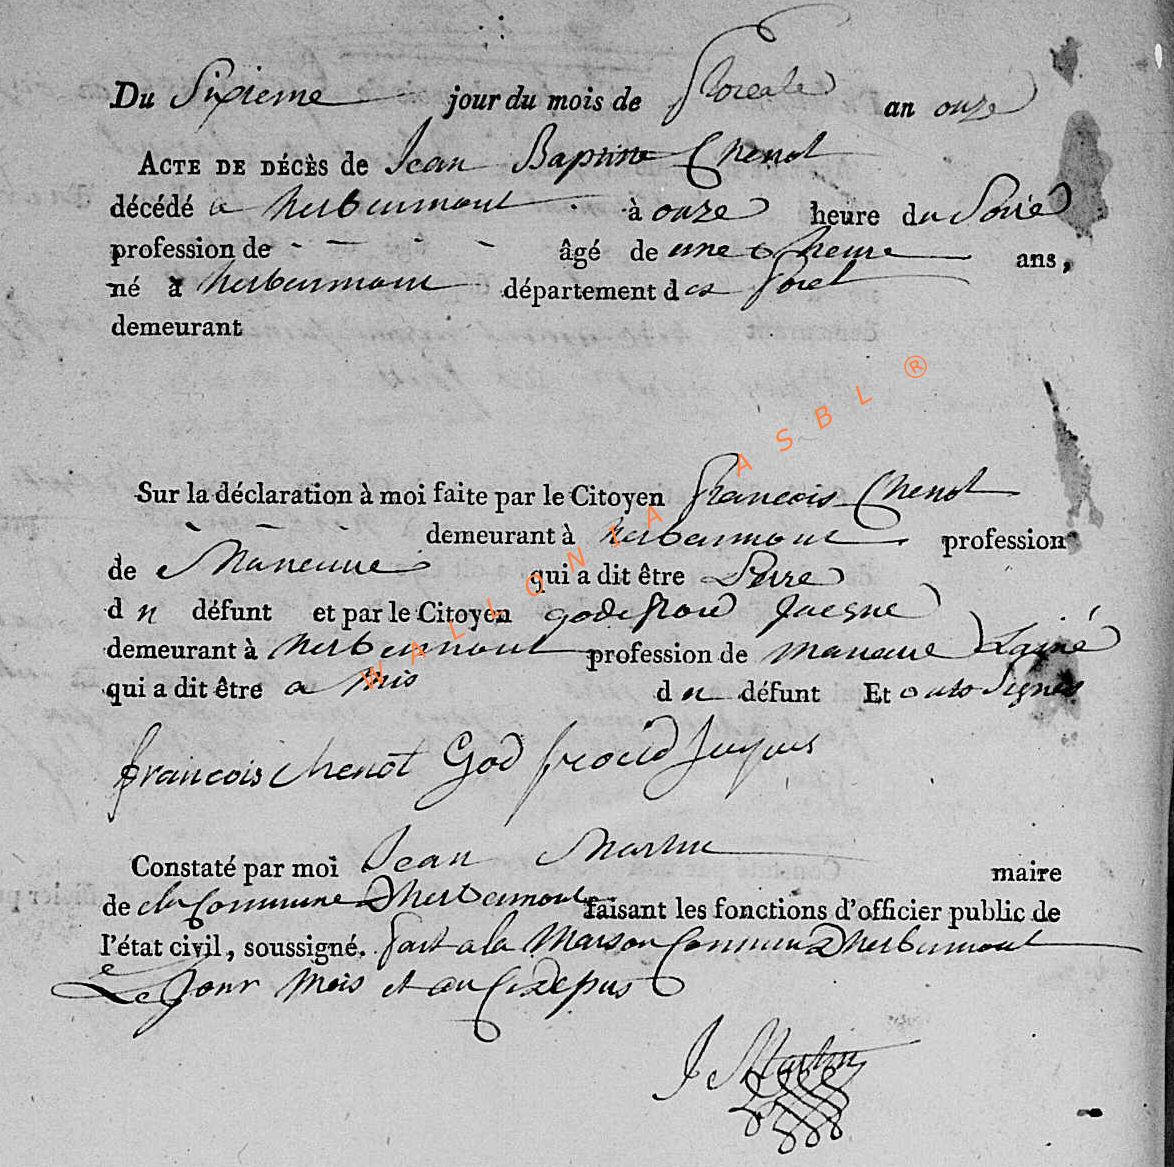 Du Sixieme jour du mois de floreale an onze
ACTE DE DÉCÈS de Jean Baptiste Chenot
décédé a herbeumont à onze heure du Soire
profession de - - - - âgé de une heure ans,
né à herbeumont département des foret
demeurant
Sur la déclaration à moi faite par le Citoyen francois Chenot
demeurant à herbeumont profession
de Maneuve qui a dit être Perre
du défunt et par le Citoyen godefroid Jacque
demeurant à herbeumont profession de maneuve Lainé
qui a dit être a mis du défunt Et onts Signés
francois chenot God froid Jaques
Constaté par moi Jean Martin maire
de la Commune Dherbeumont faisant les fonctions d'officier public de
l'état civil, soussigné. fait a la Maison Commune Dherbeumont
Le Jour Mois et an Cy Depus
J Martin
WALLONIA ASBL ®